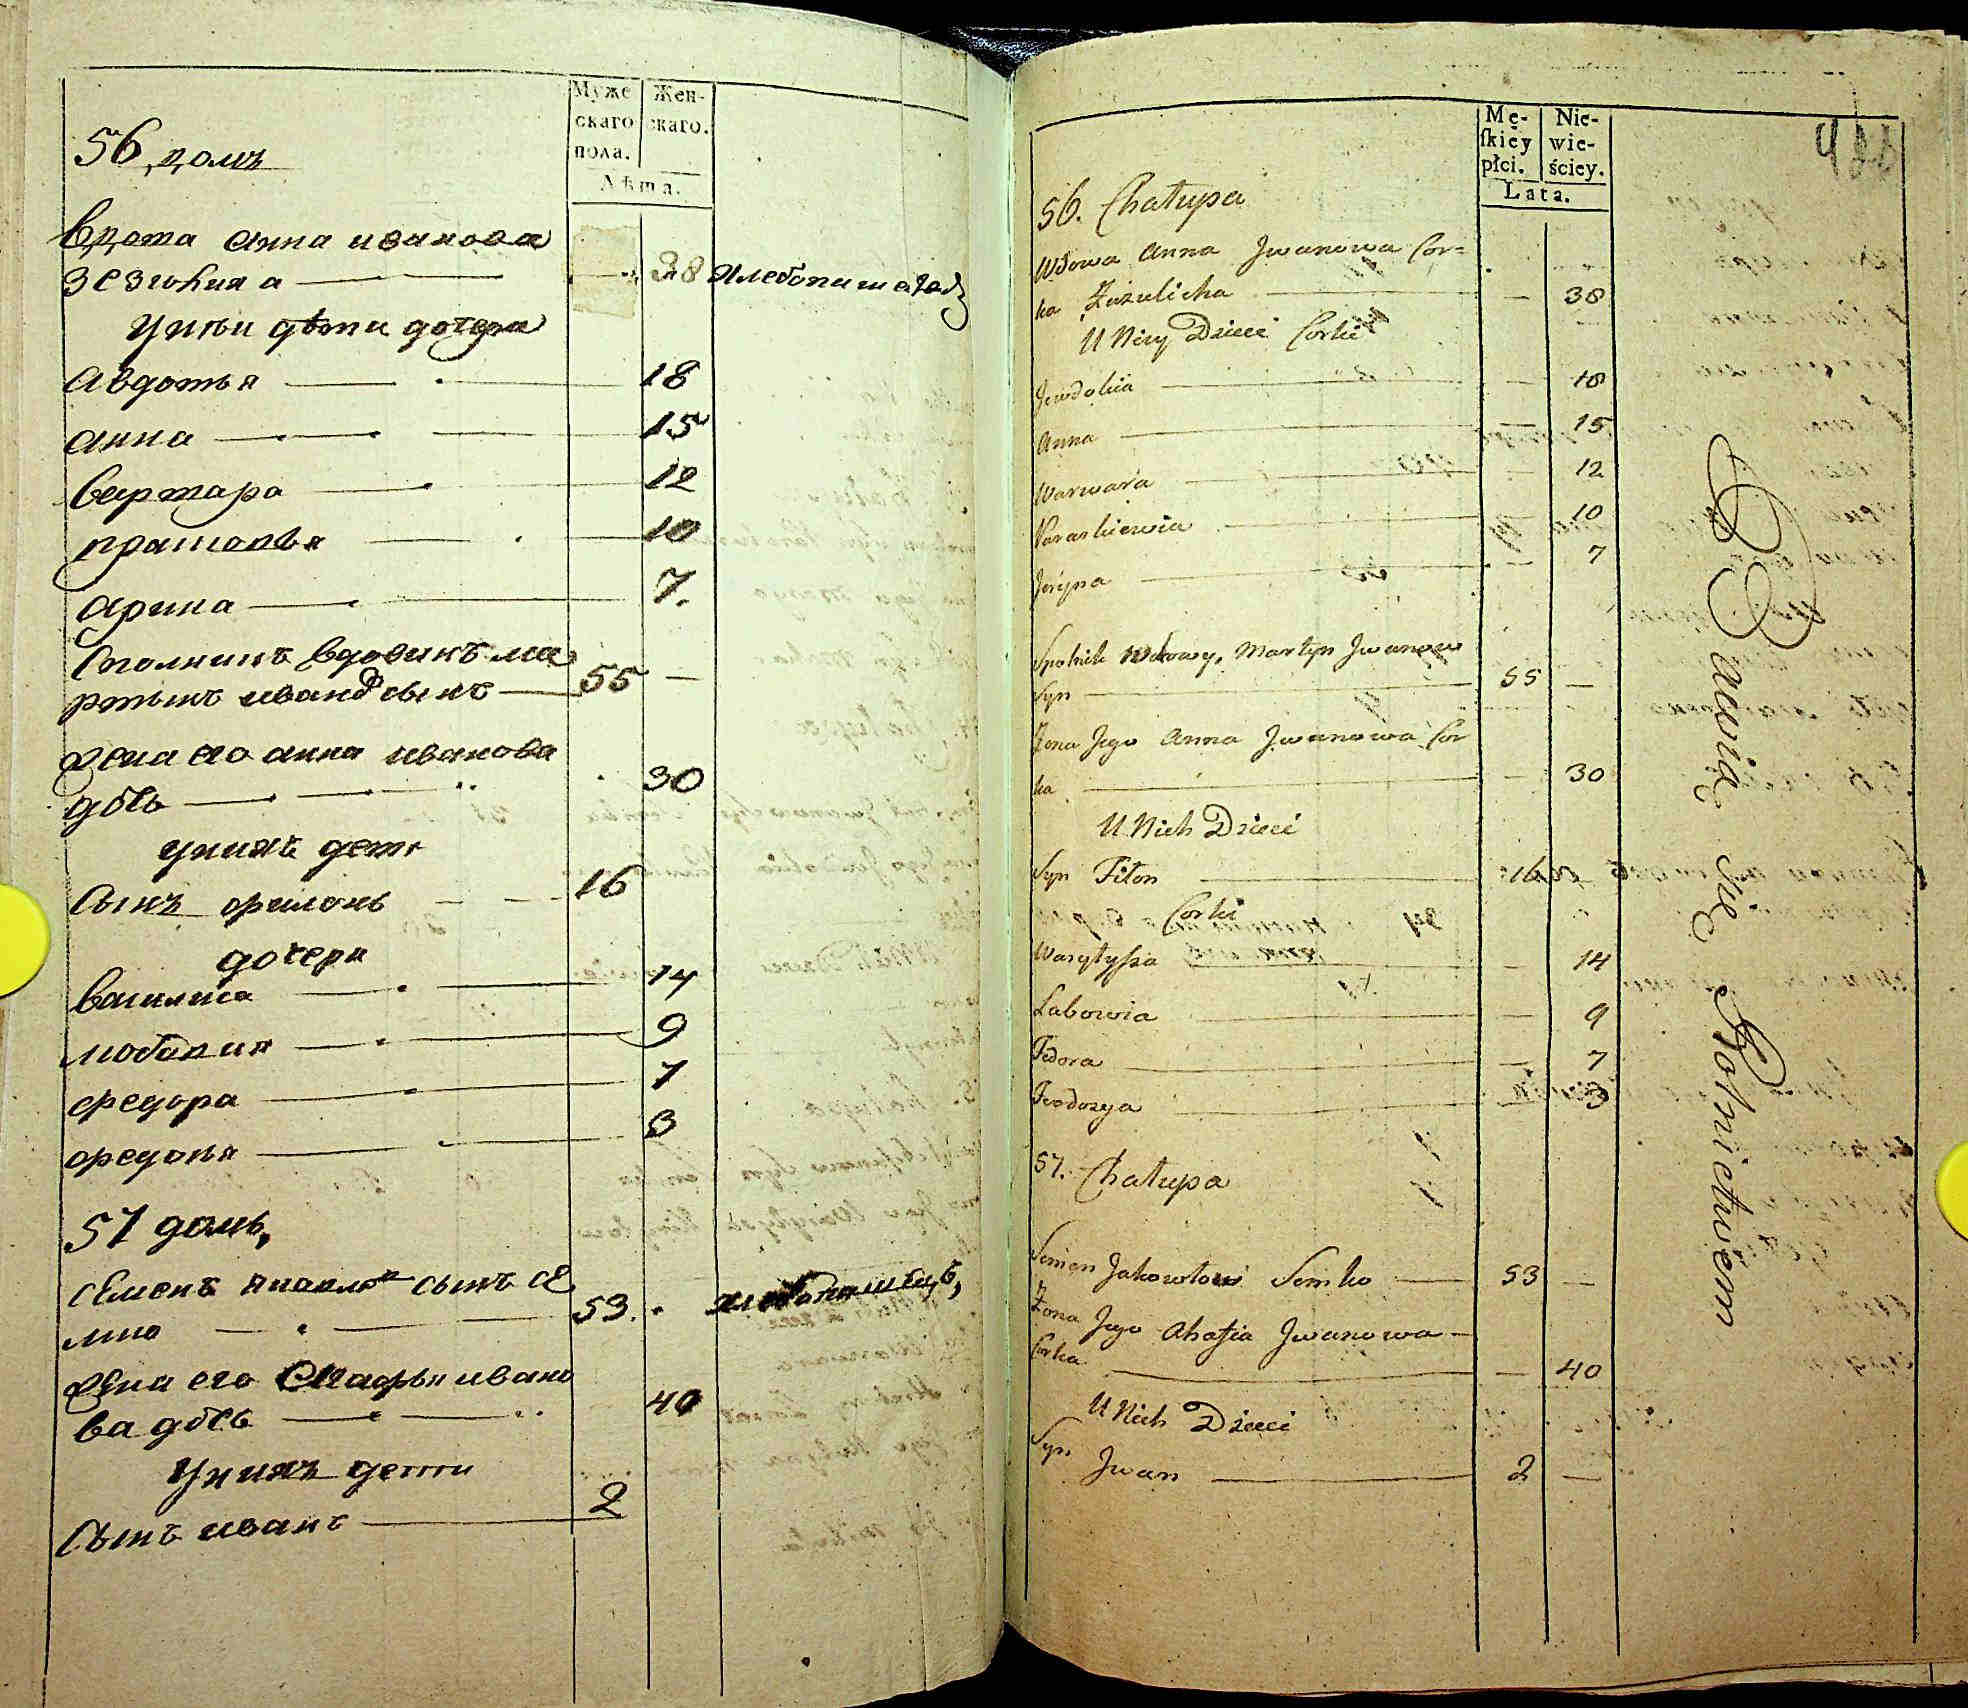 Муже
скаго
пола.
Жен-
скаго.
Лѣта.
56, домъ
вдова анна иванова
зезюлиха 38 хлебопашатъ
унеи дѣти дочери
Авдотья 18
анна 15
варвара 12
прасковья 10
арина 7.
Сполникъ вдовинъ ма
ртынъ иванов сынъ 55
жена его анна иванова
дочь 30
унихъ дети
Сынъ филонъ 16
дочери
василиса 14
любовия 9
федора 7
федосья 3
57 домъ,
семенъ яковлев сынъ се
мко 53. хлебопашецъ,
жена его Агафья ивано
ва дочь 40
унихъ дети
Сынъ иванъ 2
Mę-
ſkiéy
płci.
Nie-
wie-
ściey.
Lata.
56. Chałupa
Wdowa Anna Jwanowa Cor=
ka Zazulicha 38
U Niey Dzieci Corki
Jewdokia 18
Anna 15
Warwara 12
Paraskiewia 10
Jeryna 7
Spolnik Wdowy, Martyn Jwanow
Syn 55
Zona Jego Anna Jwanowa Cor
ka 30
U Nich Dzieci
Syn Filon 16
Corki
Wasylyssa 14
Lubowia 9
Fedora 7
Feodosya 3
57. Chałupa
Semen Jakowlow Semko 53
Żona Jego Ahafia Jwanowa
Corka 40
U Nich Dzieci
Syn
Jwan 2
Bawią się Rolnictwem